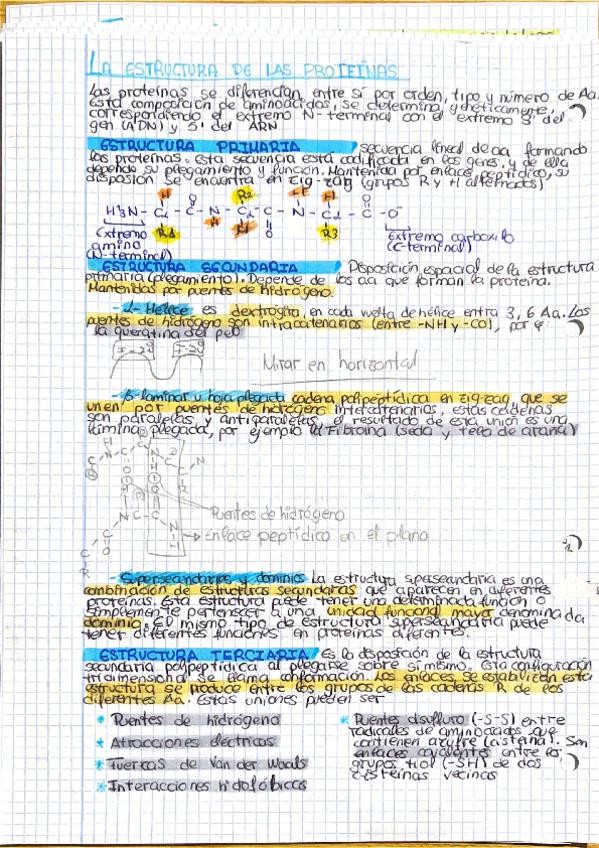 LA ESTRUCTURA DE LAS PROTEÍNAS
Las proteínas se diferencian entre si por orden, tipo y número de Aa.
Esta composición de aminoácidos, se determina genéticamente,
correspondiendo el extremo N-terminal con el extremo 3' del
gen (ADN) y 5' del ARN
ESTRUCTURA PRIMARIA secuencia lineal de aa formando
las proteínas. Esta secuencia está codificada en los genes, y de ella
depende su plegamiento y función. Mantenida por enlace peptídico, su
disposión se encuentra en zig-zag (grupos R y H alternados)
H R2 O H H
H3N - Cα - C - N - Cα - C - N - Cα - C - O-
R1 O H H O R3
Extremo amino (N-terminal)
Extremo carboxilo (C-terminal)
ESTRUCTURA SECUNDARIA Disposición espacial de la estructura
primaria (plegamiento). Depende de los aa que forman la proteína.
Mantenidas por puentes de hidrógeno.
- α-Hélice es dextrógira, en cada vuelta de hélice entra 3,6 Aa. Los
puentes de hidrógeno son intracatenarios (entre -NH y -CO), por ej:
la queratina del pelo
Mirar en horizontal
- β-laminar u hoja plegada cadena polipeptídica en zig-zag, que se
unen por puentes de hidrógeno intercatenarios, estas cadenas
son paralelas y antiparalelas, el resultado de esta unión es una
lámina plegada, por ejemplo la Fibroína (seda y tela de araña)
Puentes de hidrógeno
Enlace peptídico en el plano
- Supersecundarias y dominios La estructura supersecundaria es una
combinación de estructuras secundarias que aparecen en diferentes
proteínas. Esta estructura puede tener una determinada función o
simplemente pertenecer a una unidad funcional mayor denominada
dominio. El mismo tipo de estructura supersecundaria puede
tener diferentes funciones en proteínas diferentes.
ESTRUCTURA TERCIARIA Es la disposición de la estructura
secundaria polipeptídica al plegarse sobre sí mismo. Esta configuración
tridimensional se llama conformación. Los enlaces se establecen esta
estructura se produce entre los grupos de las cadenas R de los
diferentes Aa. Estas uniones pueden ser
* Puentes de hidrógeno
* Atracciones eléctricas
* Fuerzas de Van der Waals
* Interacciones hidrofóbicas
* Puentes disulfuro (-S-S) entre
radicales de aminoácidos que
contienen azufre (cisteína). Son
enlaces covalentes entre los
grupos tiol (-SH) de dos
cisteínas vecinas